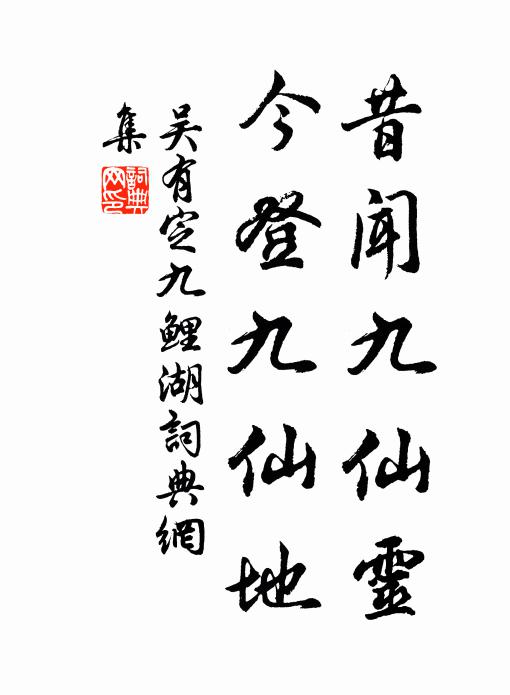 昔聞九仙靈
今登九仙地
吳有定九鯉湖詞典網
集
詞典网印